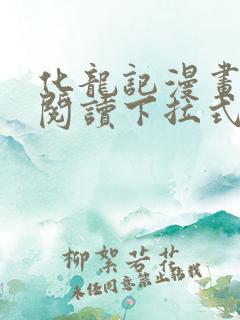 化龍記漫畫
閱讀下拉式
柳絮若花
未经同意禁止转载